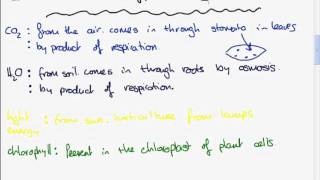 CO2 : from the air. comes in through stomata in leaves
: by product of respiration.
H2O : from soil. comes in through roots by osmosis
: by product of respiration.
light energy : from sun. horticulture from lamps
chlorophyll : Present in the chloroplast of plant cells.